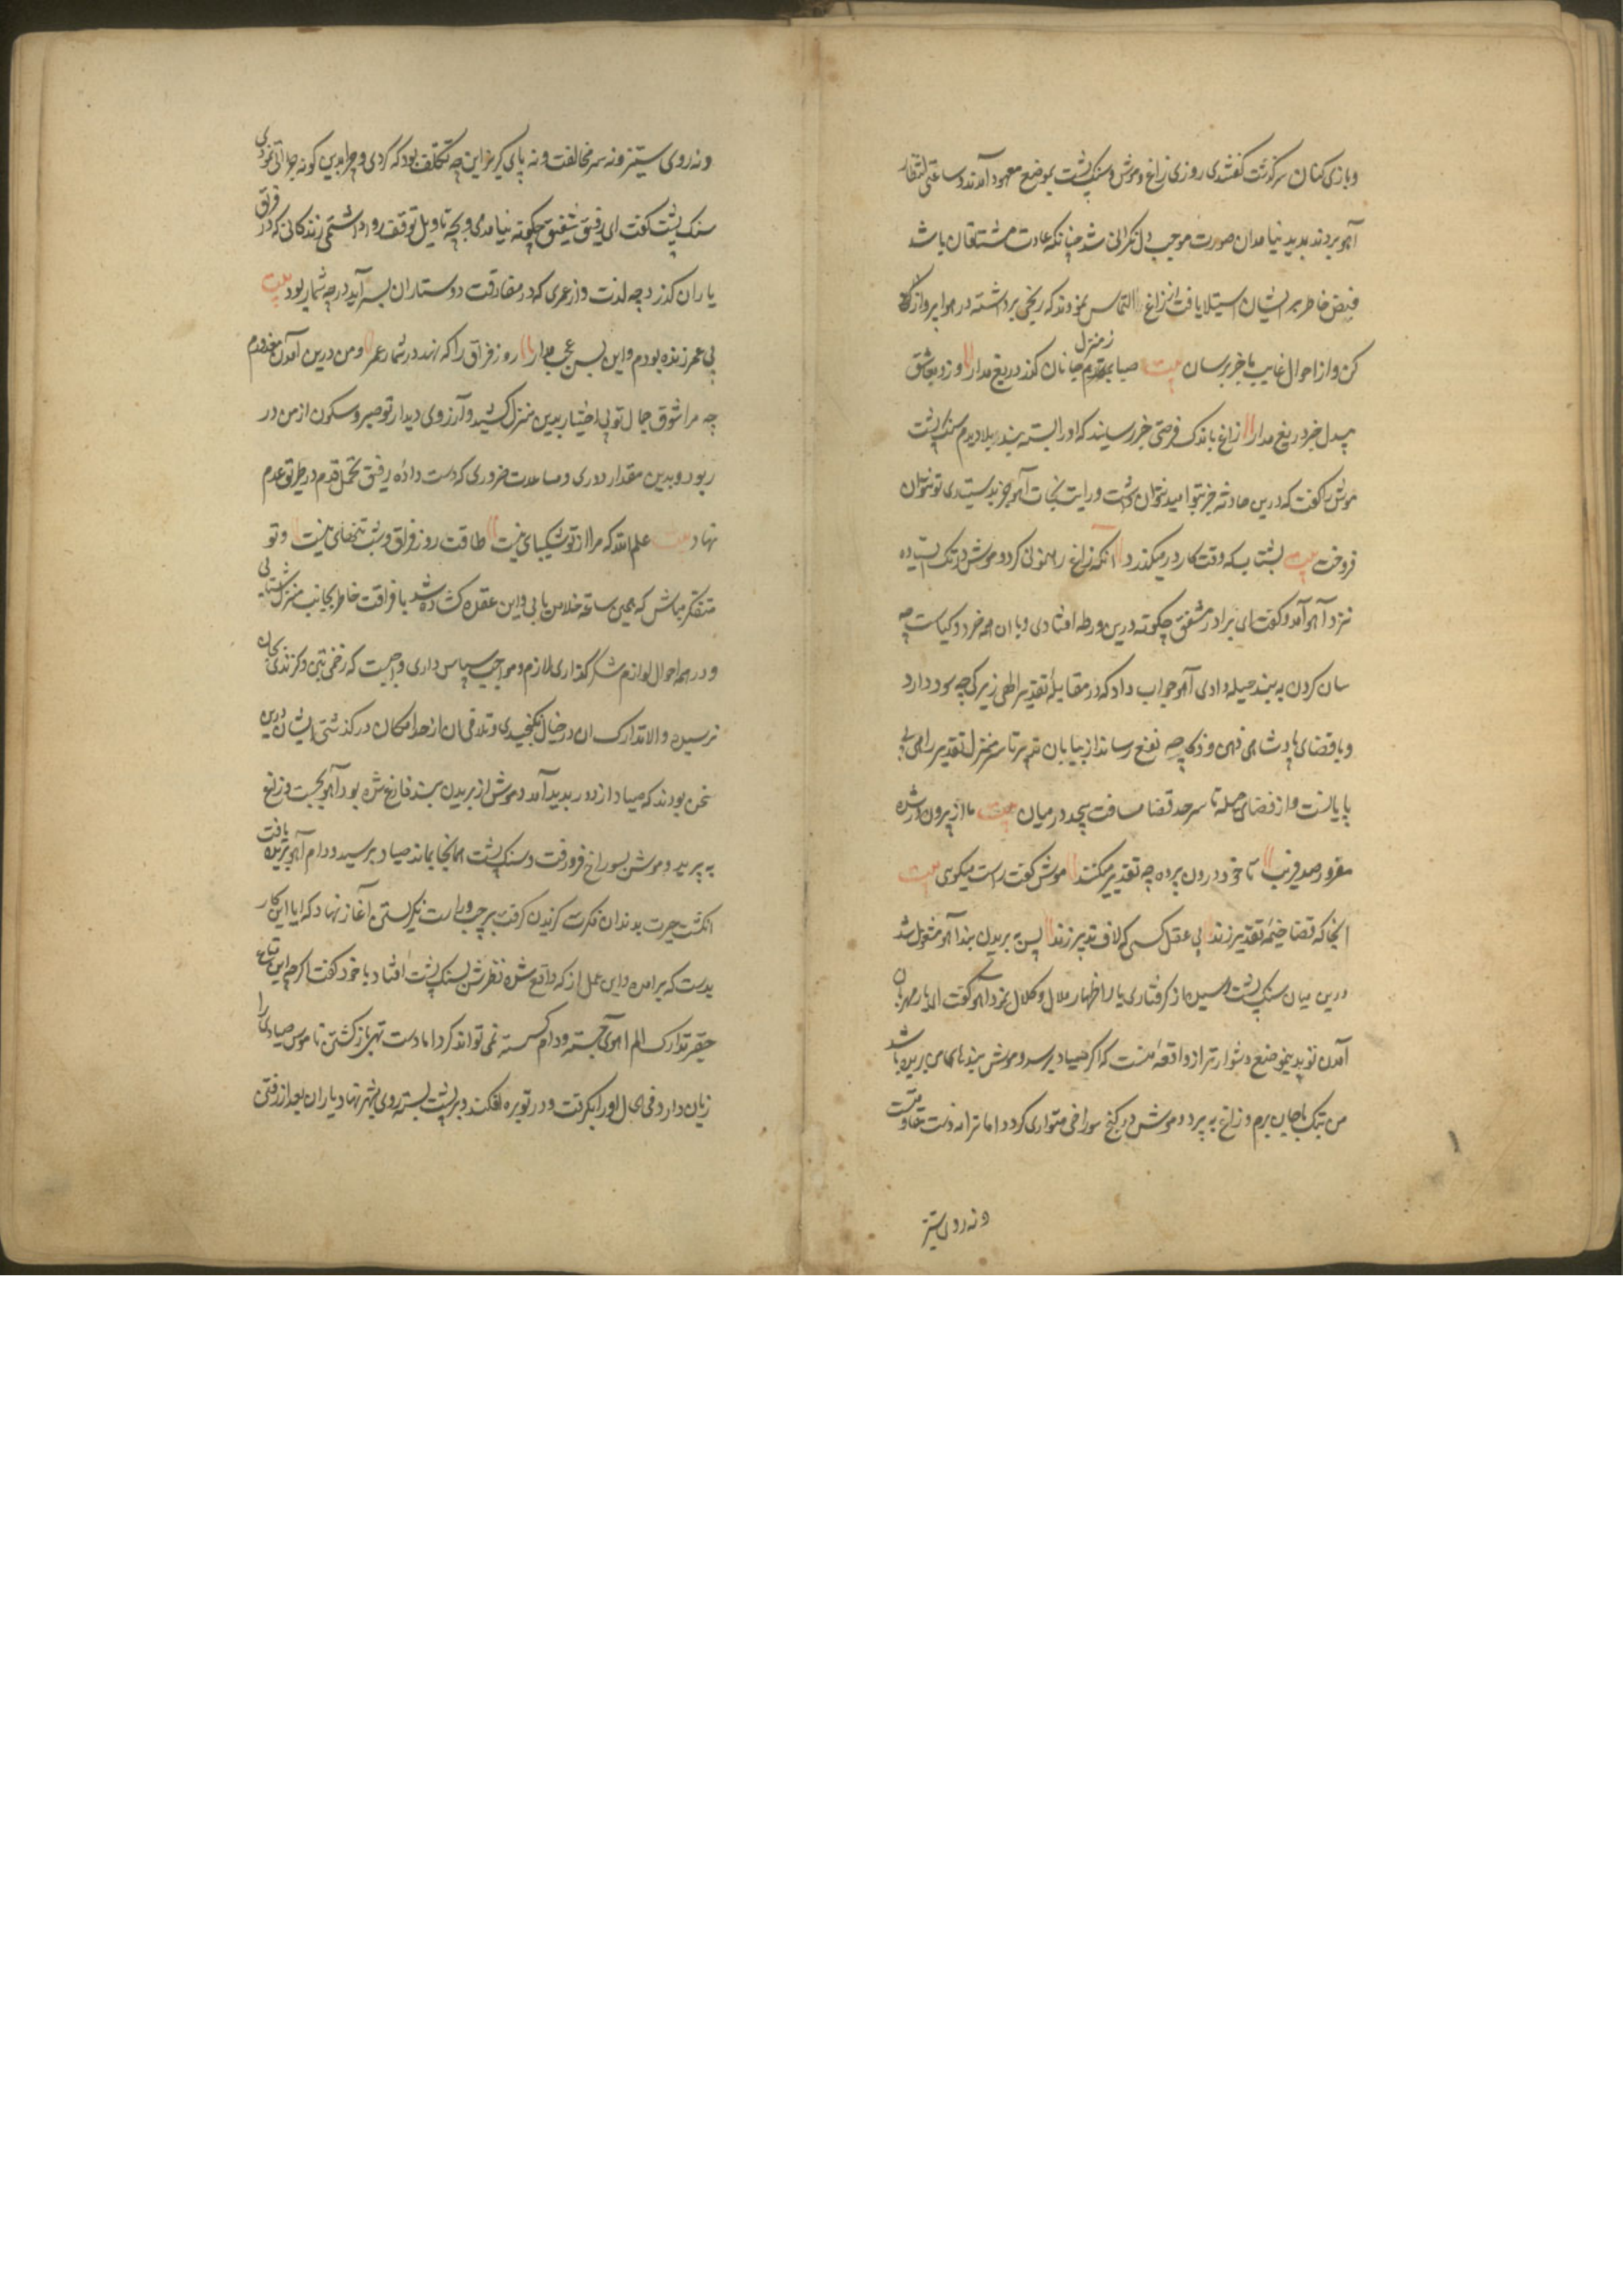 و بازی کنان سرگذشت گفتندی روزی زاغ و موش و سنک پشت بموضع معهود آمدند و ساعتی انتظار
آهو بردند پدید نیامد ان صورت موجب دل نکرانی شد چنانکه عادت مشتاقان باشد
خاطر بر ایشان استیلا یافت از زاغ التماس نمودند که رنجی برداشته در هوا پرواز
کن و از احوال غایب ما خبر برسان بیت صبا ز منزل جانان کذر دریغ مدار وزو بعاشق
بیدل خبر دریغ مدار زاغ باندک فرصتی خبر رسانید که او را بسته بند بلا دیدم سنک پشت
موش را کفت که درین حادثه جز بتو امید نتوان داشت و رایت نجات آهو جز بدستیاری تو نتوان
فروخت بیت بشتاب که وقت کار در میکذرد انکه زاغ رهنمونی کرد و موش در تک ایستاده
نزد آهو آمد و کفت ای برادر مشفق چکونه درین ورطه افتادی و با ان همه خرد و کیاست چه
سان کردن به بند حیله دادی آهو جواب داد که در مقابله تقدیر الهی زیرکی چه سود دارد
و با قضای پادشاهی ذهن و ذکا چه نفع رساند از بیابان تدبیر تا سرمنزل تقدیر راهی بی
پایانست و از فضای حیله تا سرحد قضا مسافت بیحد در میان بیت ما از برون در شده
مغرور صد فریب تا خود درون پرده چه تقدیر میکنند موش کفت راست میکوی بیت
انجا که قضا خیمه تقدیر زند بی عقل کسی که لاف تدبیر زند پس به بریدن بند آهو مشغول شد
درین میان سنک پشت رسید و از کرفتاری یار اظهار ملال و کلال نمود آهو کفت ای یار مهربان
آمدن تو بدین موضع دشوارتر از واقعه منست که اکر صیاد برسد و موش بندهای من بریده باشد
من بتک پا جان برم و زاغ به پرد و موش در کنج سوراخی متواری کردد اما ترا نه دست مقاومتست
و نه روی ستیز
و نه روی ستیز و نه سر مخالفت و نه پای کریز این چه تکلف بود که کردی و چرا بدین کونه جراتی نمودی
سنک پشت کفت ای رفیق شفیق چکونه نیامدمی و بچه تاویل توقف روا داشتمی زندکانی که در فراق
یاران کذرد چه لذت و از عمری که در مفارقت دوستاران بسر آید در چه شمار بود بیت
بی عمر زنده بودم و این بس عجب مدار روز فراق را که نهد در شمار عمر و من درین آمدن معذورم
چه مرا شوق جمال تو بی اختیار بدین منزل کشید و آرزوی دیدار تو صبر و سکون از من در
ربود و بدین مقدار دوری و مباعدت ضروری که دست داده رفیق تحمل قدم در طریق عدم
نهاد بیت علم الله که مرا از تو شکیبای نیست طاقت روز فراق و شب تنهای نیست و تو
متفکر مباش که همین ساعت خلاص یابی و این عقده کشاده شد با فراقت خاطر بجانب منزل شتابی
و در همه احوال لوازم شکر کذاری لازم و مواجب سپاس داری واجبست که زخمی بتن و کزندی بجان
نرسیده و الا تدارک ان در خیال نکنجیدی و تلافی ان از حد امکان در کذشتی ایشان درین
سخن بودند که صیاد از دور بدید آمد و موش از بریدن بند فارغ شده بود آهو بجست و زاغ
به پرید و موش بسوراخ فرو رفت و سنک پشت همانجا بماند صیاد برسید و دام آهو بریده یافت
انکشت حیرت بدندان فکرت کزیدن کرفت بر چپ و راست نکریستن آغاز نهاد که ایا این کار
بدست که برآمده و این عمل از که واقع شده نظرش بسنک پشت افتاد با خود کفت اکرچه این متاع
حقیر تدارک الم آهوی جسته و دام کسسته نمی تواند کرد اما دست تهی باز کشتن ناموس صیادی را
زیان دارد فی الحال او را بکرفت و در توبره افکند و بر پشت بسته روی بشهر نهاد یاران بعد از رفتن